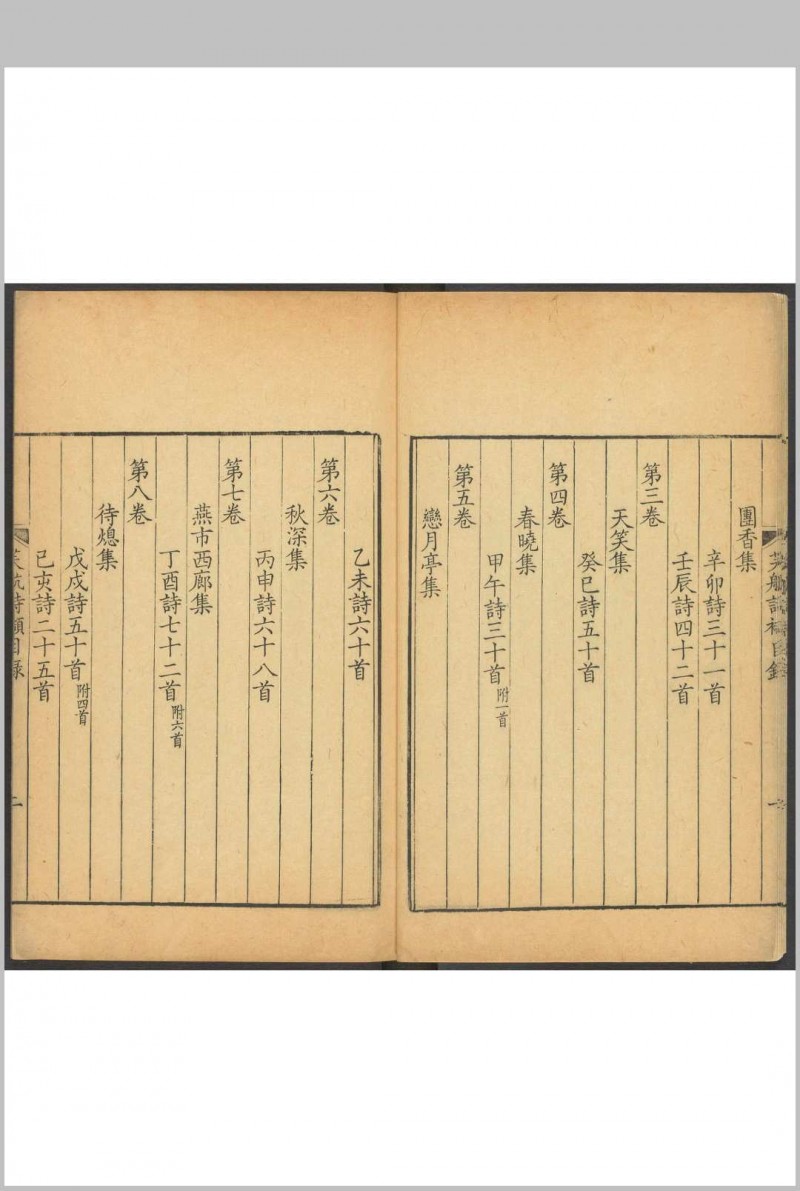 團香集
辛卯詩三十一首
壬辰詩四十二首
第三卷
天笑集
癸巳詩五十首
第四卷
春曉集
甲午詩三十首附一首
第五卷
戀月亭集
乙未詩六十首
第六卷
秋深集
丙申詩六十八首
第七卷
燕市西廊集
丁酉詩七十二首附六首
第八卷
待熄集
戊戌詩五十首附四首
己亥詩二十五首
目錄
二